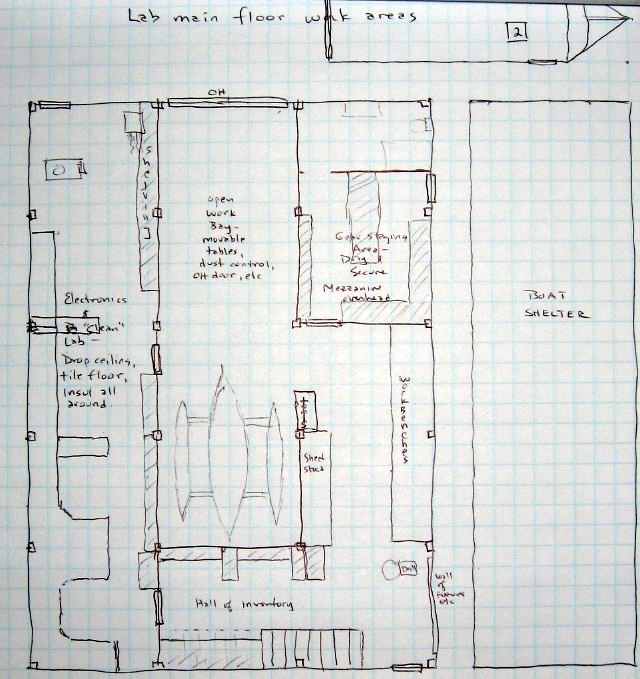 Lab main floor work areas
2
OH
shelving
open
work
Bay-
movable
tables,
dust control,
OH door, etc
Gear staging
Area-
Dry &
Secure
Mezzanine
overhead
BOAT
SHELTER
Electronics
&
"Clean"
Lab -
Drop ceiling,
tile floor,
Insul all
around.
tools
Workbenches
Sheet
stock
Drill
Hall of Inventory
Wall
of
etc